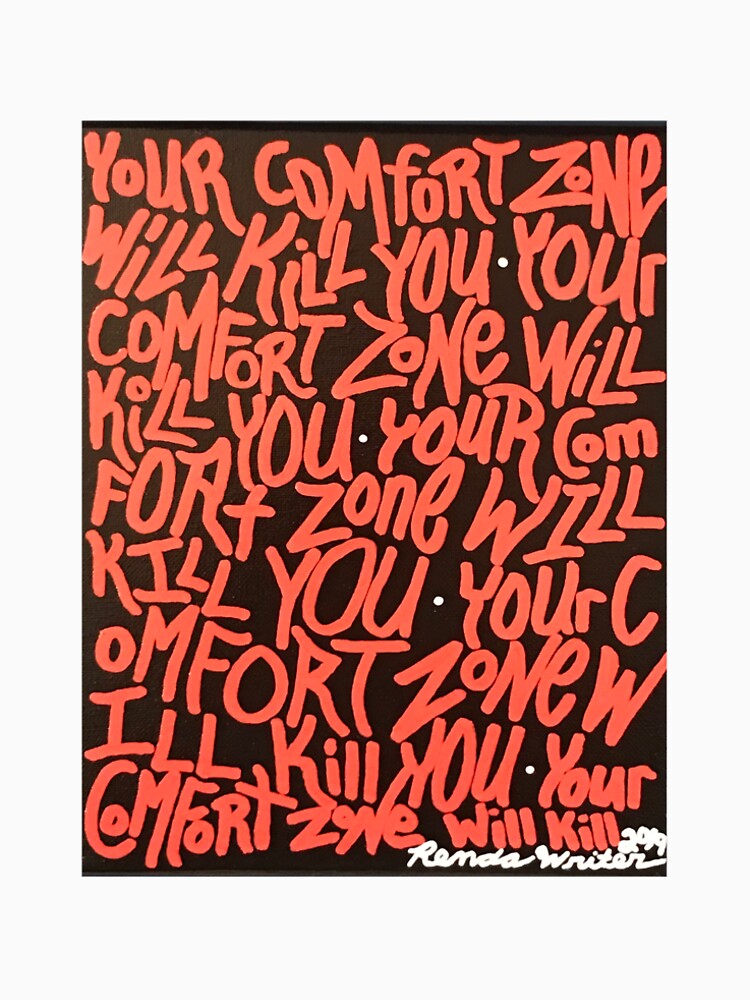 YOUR COMfORT ZoNe
WiLL KiLL YOU • YOUr
COMFORT ZoNe WiLL
KiLL YOU • YOUR Com
FORt zone WILL
KILL YOU • YOUr C
OMFORT ZoNe W
ILL Kill YOU • Your
COMFORT ZONe Will Kill
Renda Writer 2019